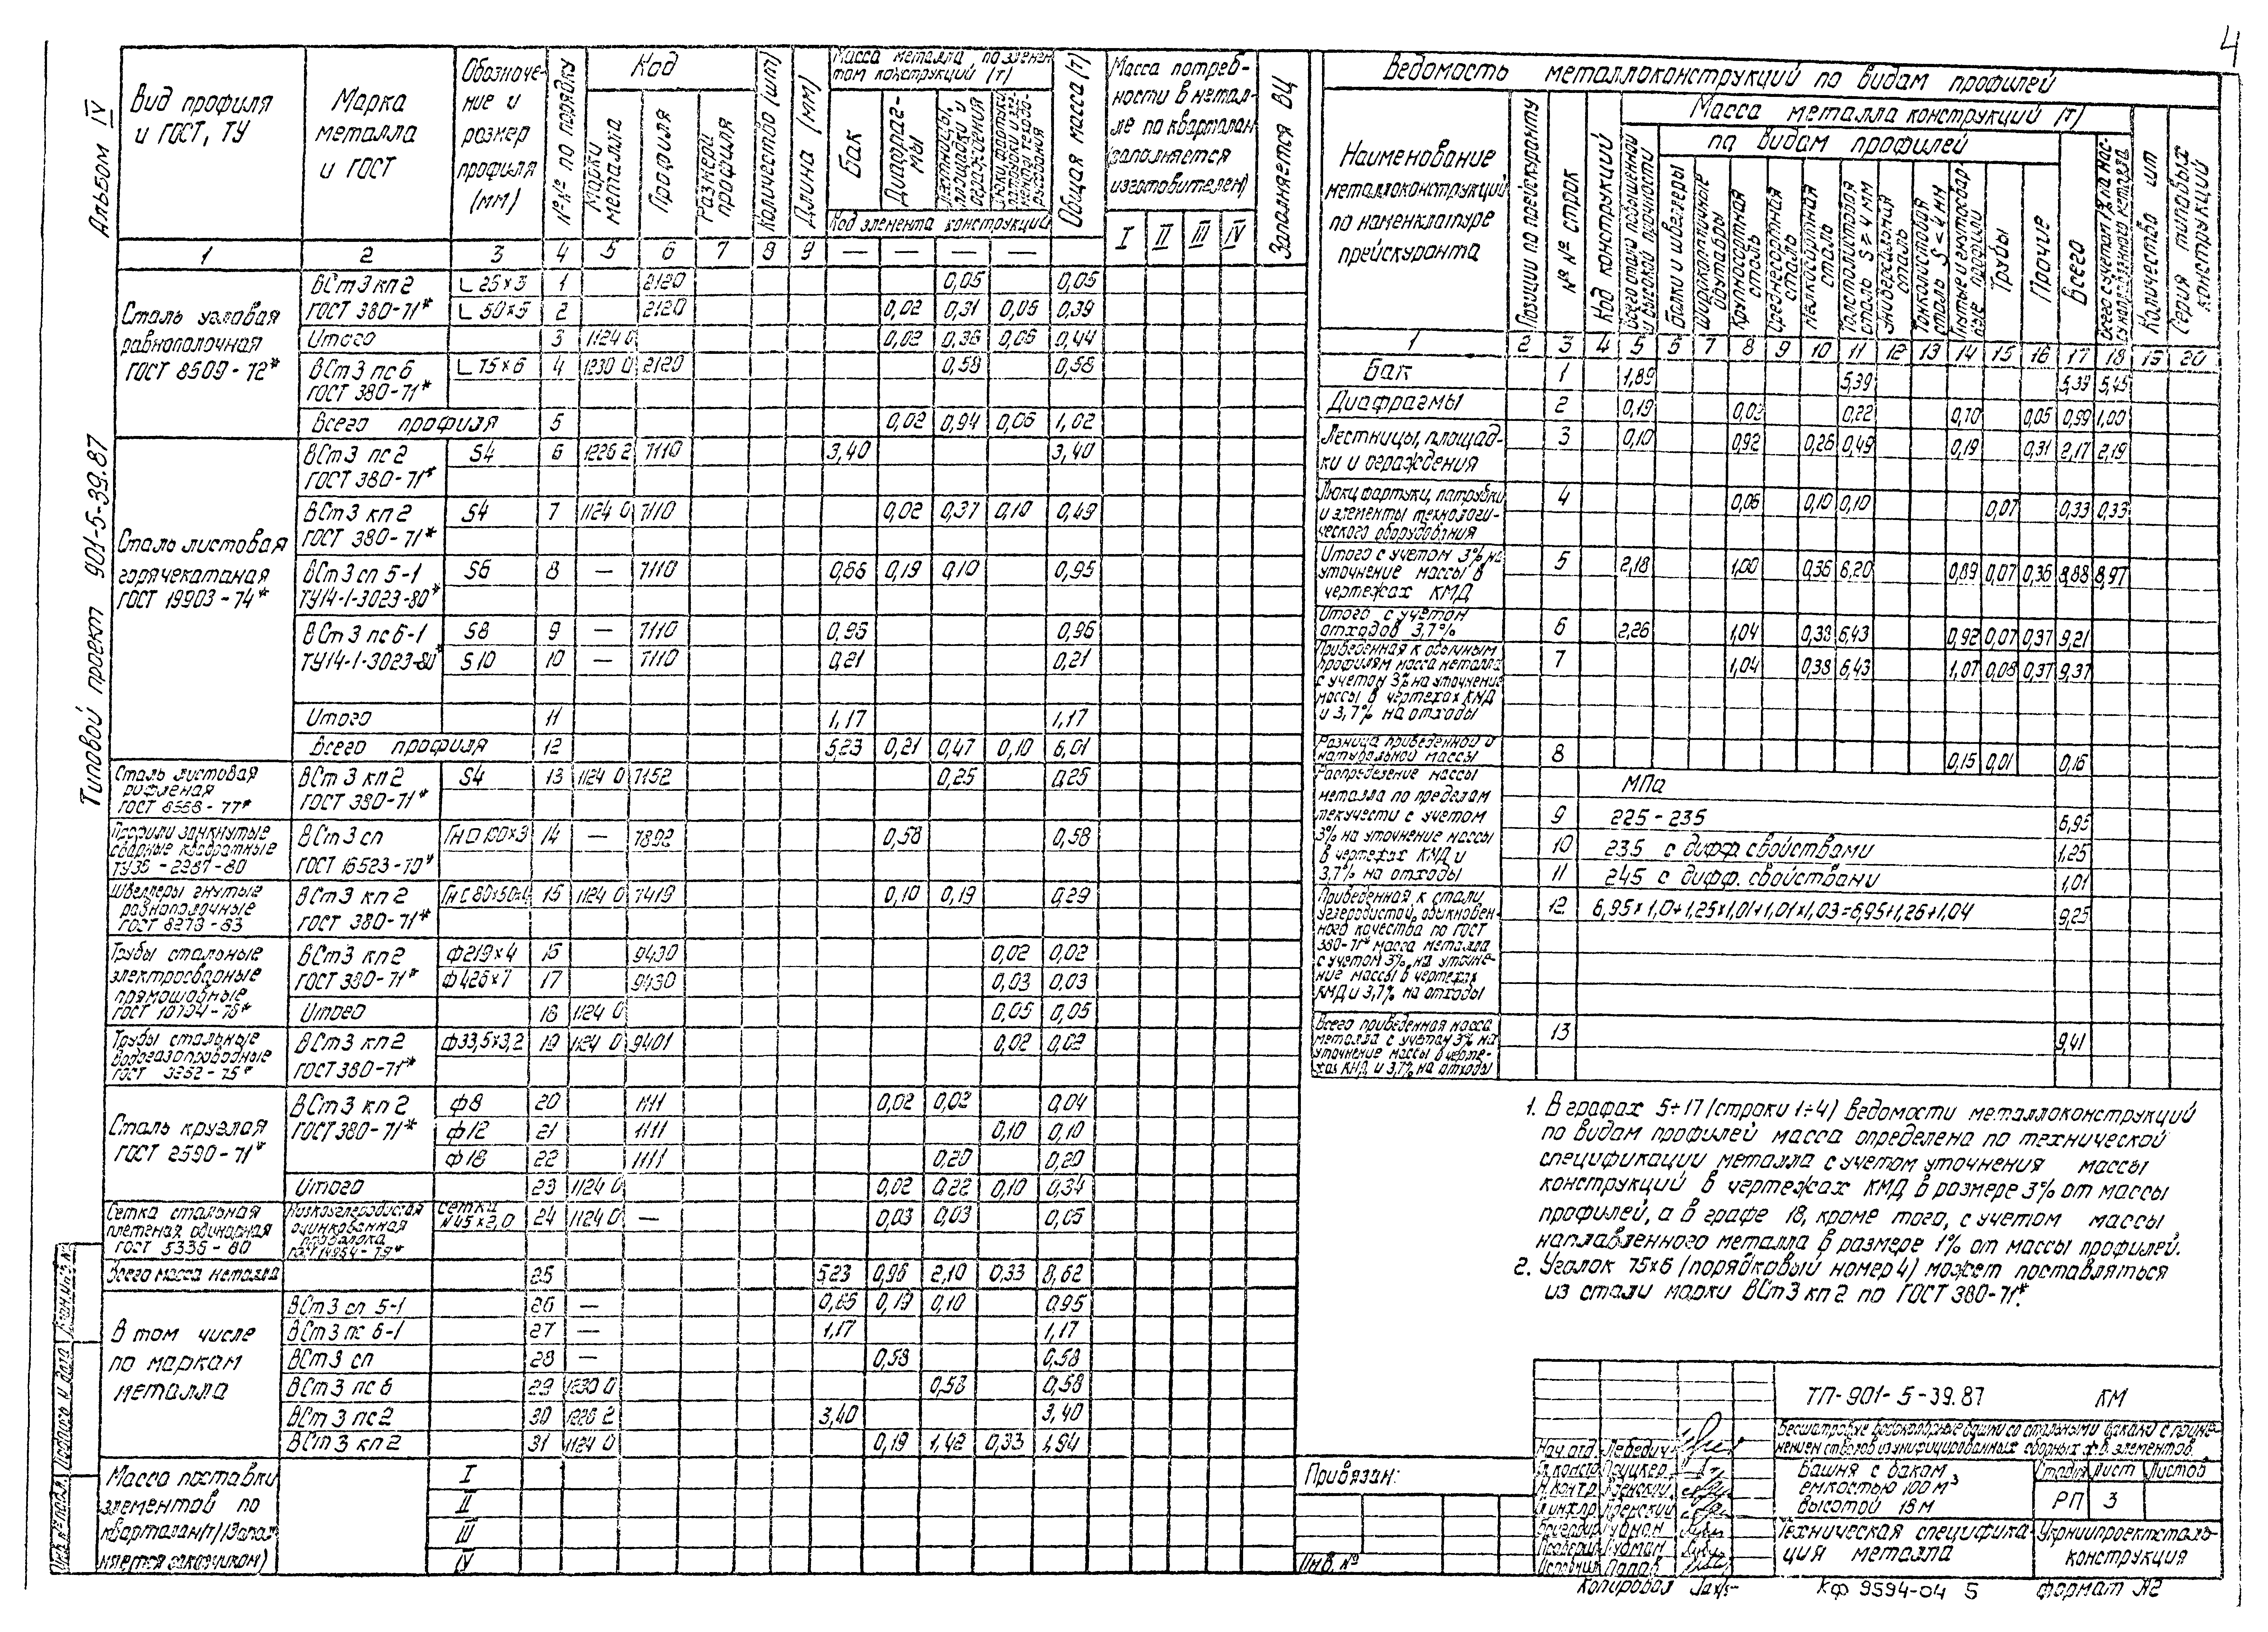 4
Альбом IV
Типовой проект 901-5-39.87
Вид профиля и ГОСТ, ТУ | Марка металла и ГОСТ | Обозначение и размер профиля (мм) | №№ по порядку | Код | Марки металла | Профиля | Размера профиля | Количество (шт) | Длина (мм) | Масса металла по элементам конструкций (т) | Бак | Диафрагмы | Лестницы, площадки и ограждения | Общая масса (т) | Масса потребности в металле по кварталам (заполняется изготовителем) | Заполняется ВЦ
Код элемента конструкций | I | II | III | IV
1 2 3 4 5 6 7 8 9 — — — —
Сталь угловая равнополочная ГОСТ 8509-72*
ВСт3кп2 ГОСТ 380-71* | L 25×3 | 1 | 2120 | 0,05 | 0,05
L 50×5 | 2 | 2120 | 0,02 | 0,31 | 0,06 | 0,39
Итого | 3 | 1124 0 | 0,02 | 0,36 | 0,06 | 0,44
ВСт3пс6 ГОСТ 380-71* | L 75×6 | 4 | 1230 0 | 2120 | 0,58 | 0,58
Всего профиля | 5 | 0,02 | 0,94 | 0,06 | 1,02
Сталь листовая горячекатаная ГОСТ 19903-74*
ВСт3пс2 ГОСТ 380-71* | S4 | 6 | 1226 2 | 7110 | 3,40 | 3,40
ВСт3кп2 ГОСТ 380-71* | S4 | 7 | 1124 0 | 7110 | 0,02 | 0,37 | 0,10 | 0,49
ВСт3сп5-1 ТУ14-1-3023-80* | S6 | 8 | — | 7110 | 0,66 | 0,19 | 0,10 | 0,95
ВСт3пс6-1 ТУ14-1-3023-80* | S8 | 9 | — | 7110 | 0,96 | 0,96
S10 | 10 | — | 7110 | 0,21 | 0,21
Итого | 11 | 1,17 | 1,17
Всего профиля | 12 | 5,23 | 0,21 | 0,47 | 0,10 | 6,01
Сталь листовая рифленая ГОСТ 8568-77* | ВСт3кп2 ГОСТ 380-71* | S4 | 13 | 1124 0 | 7152 | 0,25 | 0,25
Профили замкнутые сварные квадратные ТУ36-2287-80 | ВСт3сп ГОСТ 16523-70* | Гн □ 100×3 | 14 | — | 7892 | 0,58 | 0,58
Швеллеры гнутые равнополочные ГОСТ 8278-83 | ВСт3кп2 ГОСТ 380-71* | Гн С 80×50×4 | 15 | 1124 0 | 7419 | 0,10 | 0,19 | 0,29
Трубы стальные электросварные прямошовные ГОСТ 10704-76*
ВСт3кп2 ГОСТ 380-71* | ф219×4 | 16 | 9430 | 0,02 | 0,02
ф426×7 | 17 | 9430 | 0,03 | 0,03
Итого | 18 | 1124 0 | 0,05 | 0,05
Трубы стальные водогазопроводные ГОСТ 3262-75* | ВСт3кп2 ГОСТ 380-71* | ф33,5×3,2 | 19 | 1124 0 | 9401 | 0,02 | 0,02
Сталь круглая ГОСТ 2590-71*
ВСт3кп2 ГОСТ 380-71* | ф8 | 20 | 1111 | 0,02 | 0,02 | 0,04
ф12 | 21 | 1111 | 0,10 | 0,10
ф18 | 22 | 1111 | 0,20 | 0,20
Итого | 23 | 1124 0 | 0,02 | 0,22 | 0,10 | 0,34
Сетка стальная плетеная одинарная ГОСТ 5336-80 | Низкоуглеродистая оцинкованная проволока | сетка №45×2,0 | 24 | 1124 0 | — | 0,03 | 0,03 | 0,06
Всего масса металла | 25 | 5,23 | 0,96 | 2,10 | 0,33 | 8,62
В том числе по маркам металла
ВСт3сп5-1 | 26 | — | 0,66 | 0,19 | 0,10 | 0,95
ВСт3пс6-1 | 27 | — | 1,17 | 1,17
ВСт3сп | 28 | — | 0,58 | 0,58
ВСт3пс6 | 29 | 1230 0 | 0,58 | 0,58
ВСт3пс2 | 30 | 1226 2 | 3,40 | 3,40
ВСт3кп2 | 31 | 1124 0 | 0,19 | 1,42 | 0,33 | 1,94
Масса поставки элементов по кварталам (т) (Заполняется заказчиком) | I | II | III | IV
Ведомость металлоконструкций по видам профилей
Наименование металлоконструкций по наменклатуре прейскуранта | Позиции по прейскуранту | №№ строк | Код конструкций | Масса металла конструкций (т) | Всего стали повышенной и высокой прочности | по видам профилей | Балки и швеллеры | Широкополочные двутавры | Крупносортная сталь | Среднесортная сталь | Мелкосортная сталь | Толстолистовая сталь S ≥ 4 мм | Универсальная сталь | Тонколистовая сталь S < 4 мм | Гнутые и гнутосварные профили | Трубы | Прочие | Всего | Всего с учетом 1% на массу наплавленного металла | Количество шт | Серия типовых конструкций
1 2 3 4 5 6 7 8 9 10 11 12 13 14 15 16 17 18 19 20
Бак | 1 | 1,89 | 5,39 | 5,39 | 5,45
Диафрагмы | 2 | 0,19 | 0,02 | 0,22 | 0,70 | 0,05 | 0,99 | 1,00
Лестницы, площадки и ограждения | 3 | 0,10 | 0,92 | 0,26 | 0,49 | 0,19 | 0,31 | 2,17 | 2,19
Люки, фартуки, патрубки и элементы технологического оборудования | 4 | 0,06 | 0,10 | 0,10 | 0,07 | 0,33 | 0,33
Итого с учетом 3% на уточнение массы в чертежах КМД | 5 | 2,18 | 1,00 | 0,36 | 6,20 | 0,89 | 0,07 | 0,36 | 8,88 | 8,97
Итого с учетом отходов 3,7% | 6 | 2,26 | 1,04 | 0,38 | 6,43 | 0,92 | 0,07 | 0,37 | 9,21
Приведенная к обычным профилям масса металла с учетом 3% на уточнение массы в чертежах КМД и 3,7% на отходы | 7 | 1,04 | 0,38 | 6,43 | 1,07 | 0,08 | 0,37 | 9,37
Разница приведенной и натуральной массы | 8 | 0,15 | 0,01 | 0,16
Распределение массы металла по пределам текучести с учетом 3% на уточнение массы в чертежах КМД и 3,7% на отходы | МПа
9 | 225-235 | 6,95
10 | 235 с дифф. свойствами | 1,25
11 | 245 с дифф. свойствами | 1,01
Приведенная к стали углеродистой обыкновенного качества по ГОСТ 380-71* масса металла с учетом 3% на уточнение массы в чертежах КМД и 3,7% на отходы | 12 | 6,95×1,0+1,25×1,01+1,01×1,03=6,95+1,26+1,04 | 9,25
Всего приведенная масса металла с учетом 3% на уточнение массы в чертежах КМД и 3,7% на отходы | 13 | 9,41
1. В графах 5÷17 (строки 1÷4) Ведомости металлоконструкций
по видам профилей масса определена по технической
спецификации металла с учетом уточнения массы
конструкций в чертежах КМД в размере 3% от массы
профилей, а в графе 18, кроме того, с учетом массы
наплавленного металла в размере 1% от массы профилей.
2. Уголок 75×6 (порядковый номер 4) может поставляться
из стали марки ВСт3кп2 по ГОСТ 380-71*.
Привязан:
Инв. №
Нач.отд. Лебедич
Гл.констр.
Н.контр.
Бригадир Гудман
Проверил Гудман
Исполнил Попов
ТП-901-5-39.87 КМ
Бесшатровые водонапорные башни со стальными баками с применением стволов из унифицированных сборных ж.б. элементов.
Башня с баком емкостью 100 м³ высотой 18 м
Стадия Лист Листов
РП 3
Техническая спецификация металла
Укрниипроектстальконструкция
Инв.№ подл. Подпись и дата Взам.инв.№
Копировал
КФ 9594-04 5
формат А2